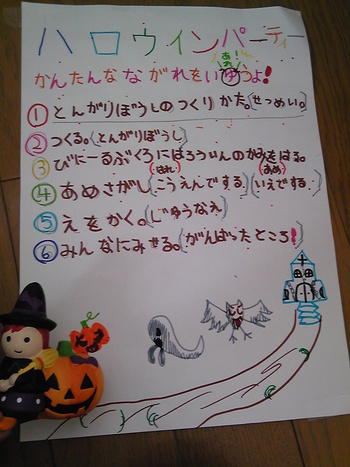 ハロウィンパーティー
あっ!
かんたんなながれをいゆうよ!
①とんがりぼうしのつくりかた。(せつめい。)
②つくる。(とんがりぼうし)
③びにーるぶくろにはろうぃんのかみをはる。
(はれ) (あめ)
④あめさがし(こうえんでする。)(いえでする。)
⑤えをかく。(じゆうなえ)
⑥みんなにみせる。(がんばったところ!)